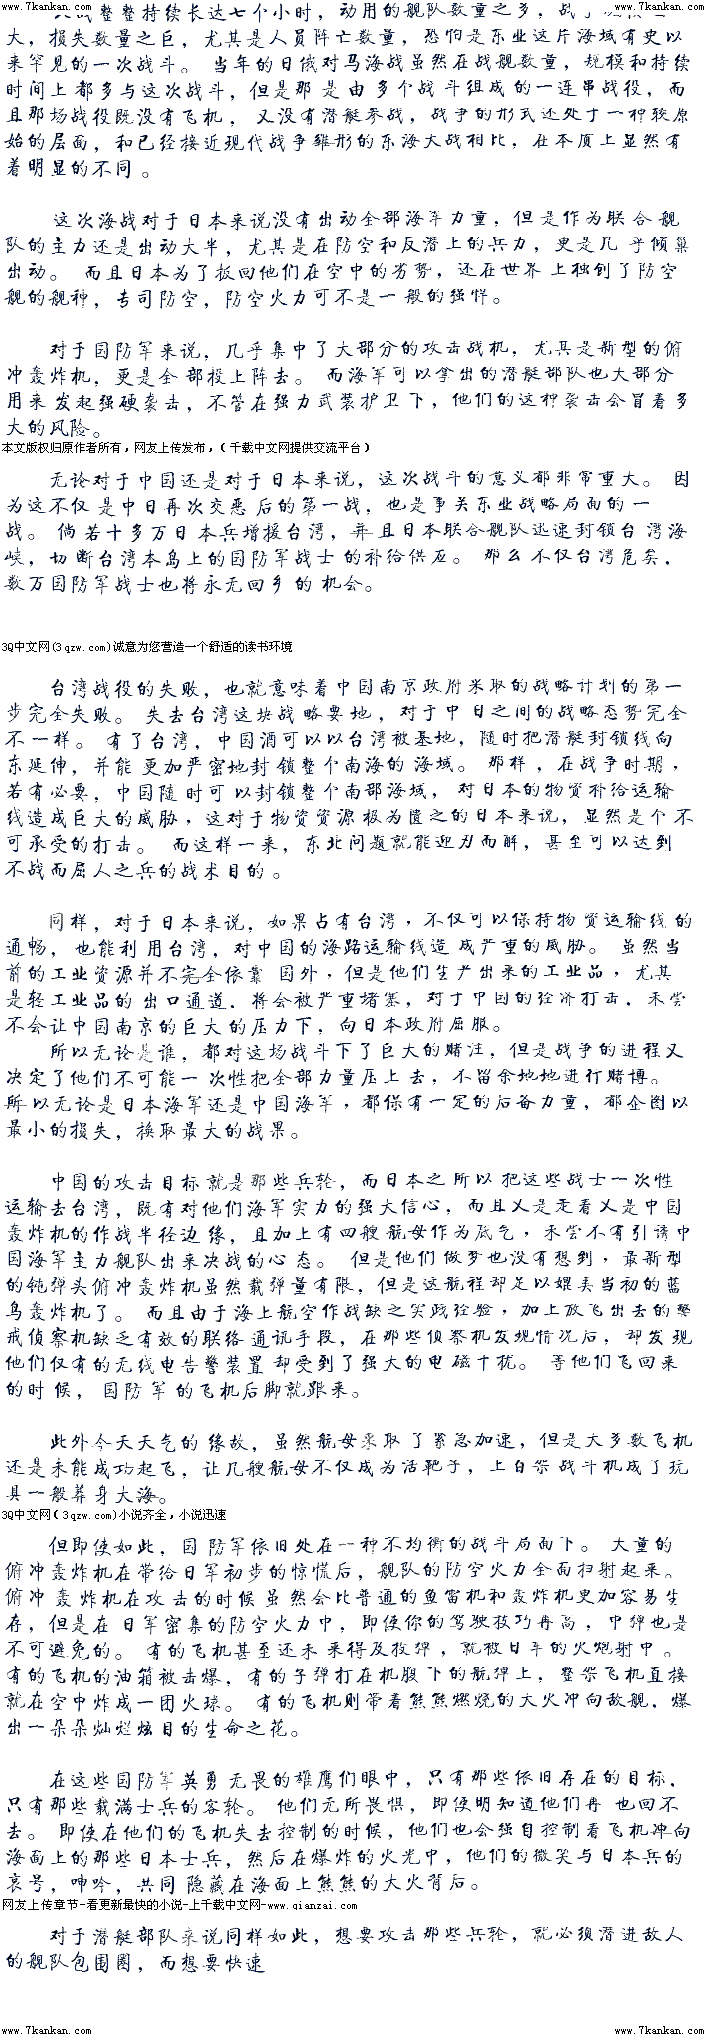 www.7kankan.com www.7kankan.com
大战整整持续长达七个小时，动用的舰队数量之多，战争规模之
大，损失数量之巨，尤其是人员阵亡数量，恐怕是东亚这片海域有史以
来罕见的一次战斗。 当年的日俄对马海战虽然在战舰数量，规模和持续
时间上都多与这次战斗，但是那是由多个战斗组成的一连串战役，而
且那场战役既没有飞机，又没有潜艇参战，战争的形式还处于一种较原
始的层面，和已经接近现代战争雏形的东海大战相比，在本质上显然有
着明显的不同。
这次海战对于日本来说没有出动全部海军力量，但是作为联合舰
队的主力还是出动大半，尤其是在防空和反潜上的兵力，更是几乎倾巢
出动。 而且日本为了扳回他们在空中的劣势，还在世界上独创了防空
舰的舰种，专司防空，防空火力可不是一般的强悍。
对于国防军来说，几乎集中了大部分的攻击战机，尤其是新型的俯
冲轰炸机，更是全部投上阵去。 而海军可以拿出的潜艇部队也大部分
用来发起强硬袭击，不管在强力武装护卫下，他们的这种袭击会冒着多
大的风险。
本文版权归原作者所有，网友上传发布，（千载中文网提供交流平台）
无论对于中国还是对于日本来说，这次战斗的意义都非常重大。 因
为这不仅是中日再次交恶后的第一战，也是事关东亚战略局面的一
战。 倘若十多万日本兵增援台湾，并且日本联合舰队迅速封锁台湾海
峡，切断台湾本岛上的国防军战士的补给供应。 那么不仅台湾危矣，
数万国防军战士也将永无回乡的机会。
3Q中文网(3qzw.com)诚意为您营造一个舒适的读书环境
台湾战役的失败，也就意味着中国南京政府采取的战略计划的第一
步完全失败。 失去台湾这块战略要地，对于中日之间的战略态势完全
不一样。 有了台湾，中国酒可以以台湾被基地，随时把潜艇封锁线向
东延伸，并能更加严密地封锁整个南海的海域。 那样，在战争时期，
若有必要，中国随时可以封锁整个南部海域，对日本的物资补给运输
线造成巨大的威胁，这对于物资资源极为匮乏的日本来说，显然是个不
可承受的打击。 而这样一来，东北问题就能迎刃而解，甚至可以达到
不战而屈人之兵的战术目的。
同样，对于日本来说，如果占有台湾，不仅可以保持物资运输线的
通畅，也能利用台湾，对中国的海路运输线造成严重的威胁。 虽然当
前的工业资源并不完全依靠国外，但是他们生产出来的工业品，尤其
是轻工业品的出口通道，将会被严重堵塞，对于中国的经济打击，未尝
不会让中国南京的巨大的压力下，向日本政府屈服。
所以无论是谁，都对这场战斗下了巨大的赌注，但是战争的进程又
决定了他们不可能一次性把全部力量压上去，不留余地地进行赌博。
所以无论是日本海军还是中国海军，都保有一定的后备力量，都企图以
最小的损失，换取最大的战果。
中国的攻击目标就是那些兵轮，而日本之所以把这些战士一次性
运输去台湾，既有对他们海军实力的强大信心，而且又是走着又是中国
轰炸机的作战半径边缘，且加上有四艘航母作为底气，未尝不有引诱中
国海军主力舰队出来决战的心态。 但是他们做梦也没有想到，最新型
的钝弹头俯冲轰炸机虽然载弹量有限，但是这航程却足以媲美当初的蓝
鸟轰炸机了。 而且由于海上航空作战缺乏实践经验，加上放飞出去的警
戒侦察机缺乏有效的联络通讯手段，在那些侦察机发现情况后，却发现
他们仅有的无线电告警装置却受到了强大的电磁干扰。 等他们飞回来
的时候，国防军的飞机后脚就跟来。
此外今天天气的缘故，虽然航母采取了紧急加速，但是大多数飞机
还是未能成功起飞，让几艘航母不仅成为活靶子，上百架战斗机成了玩
具一般葬身大海。
3Q中文网(3qzw.com)小说齐全，小说迅速
但即使如此，国防军依旧处在一种不均衡的战斗局面下。 大量的
俯冲轰炸机在带给日军初步的惊慌后，舰队的防空火力全面扫射起来。
俯冲轰炸机在攻击的时候虽然会比普通的鱼雷机和轰炸机更加容易生
存，但是在日军密集的防空火力中，即使你的驾驶技巧再高，中弹也是
不可避免的。 有的飞机甚至还未来得及投弹，就被日军的火炮射中。
有的飞机的油箱被击爆，有的子弹打在机腹下的航弹上，整架飞机直接
就在空中炸成一团火球。 有的飞机则带着熊熊燃烧的大火冲向敌舰，爆
出一朵朵灿烂炫目的生命之花。
在这些国防军英勇无畏的雄鹰们眼中，只有那些依旧存在的目标，
只有那些载满士兵的客轮。 他们无所畏惧，即使明知道他们再也回不
去。 即使在他们的飞机失去控制的时候，他们也会强自控制着飞机冲向
海面上的那些日本士兵，然后在爆炸的火光中，他们的微笑与日本兵的
哀号，呻吟，共同隐藏在海面上熊熊的大火背后。
网友上传章节-看更新最快的小说-上千载中文网-www.qianzai.com
对于潜艇部队来说同样如此，想要攻击那些兵轮，就必须潜进敌人
的舰队包围圈，而想要快速
www.7kankan.com www.7kankan.com